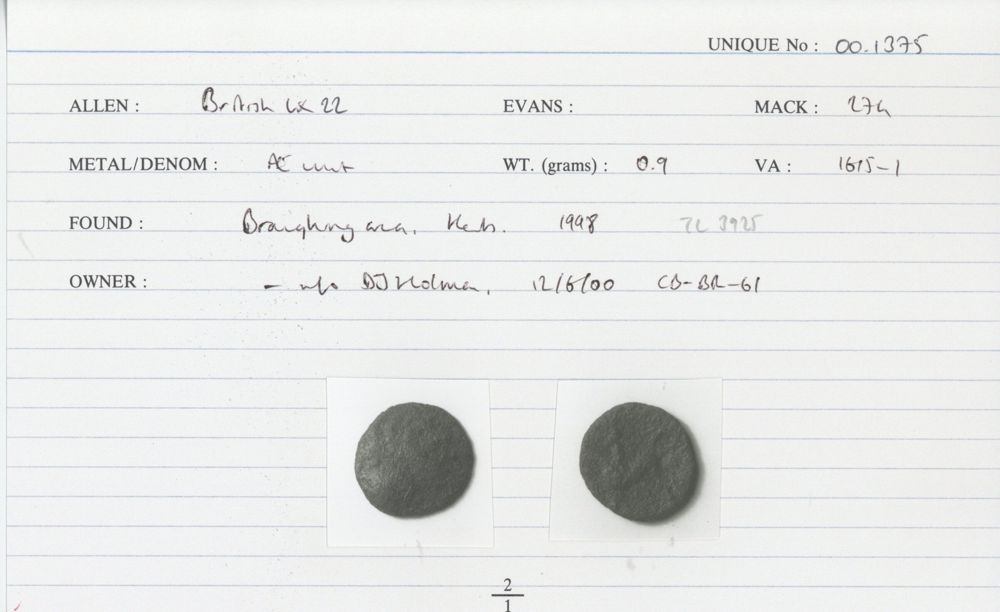 UNIQUE No : 00.1375
ALLEN : British LX 22 EVANS : MACK : 274
METAL/DENOM : AE unit WT. (grams) : 0.9 VA : 1615-1
FOUND : Braughing area, Herts. 1998 TL 3925
OWNER : - info DJ Holman, 12/6/00 CD-BR-61
2
1